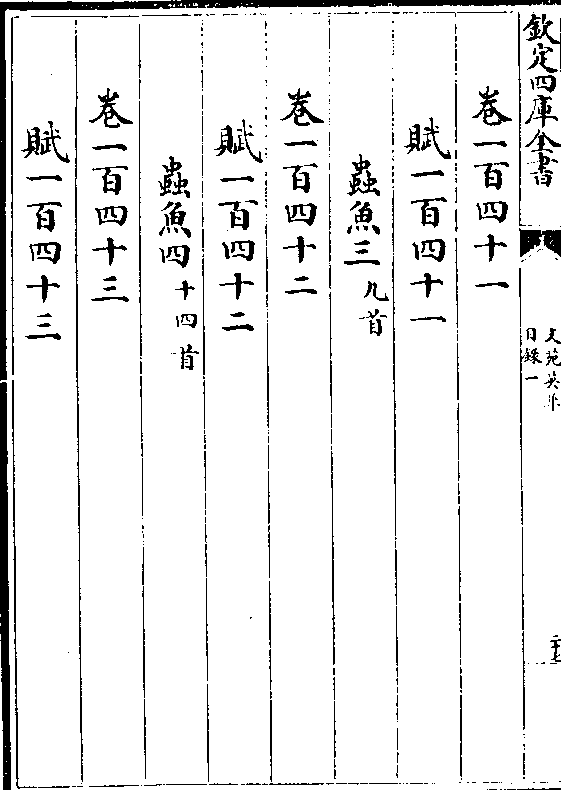 欽定四庫全書
文苑英華
目錄一
卷一百四十一
賦一百四十一
蟲魚三九首
卷一百四十二
賦一百四十二
蟲魚四十四首
卷一百四十三
賦一百四十三